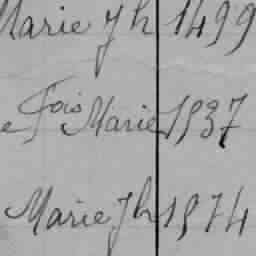 Marie Jh 1499
e Fois Marie 1537
Marie Jh 1574